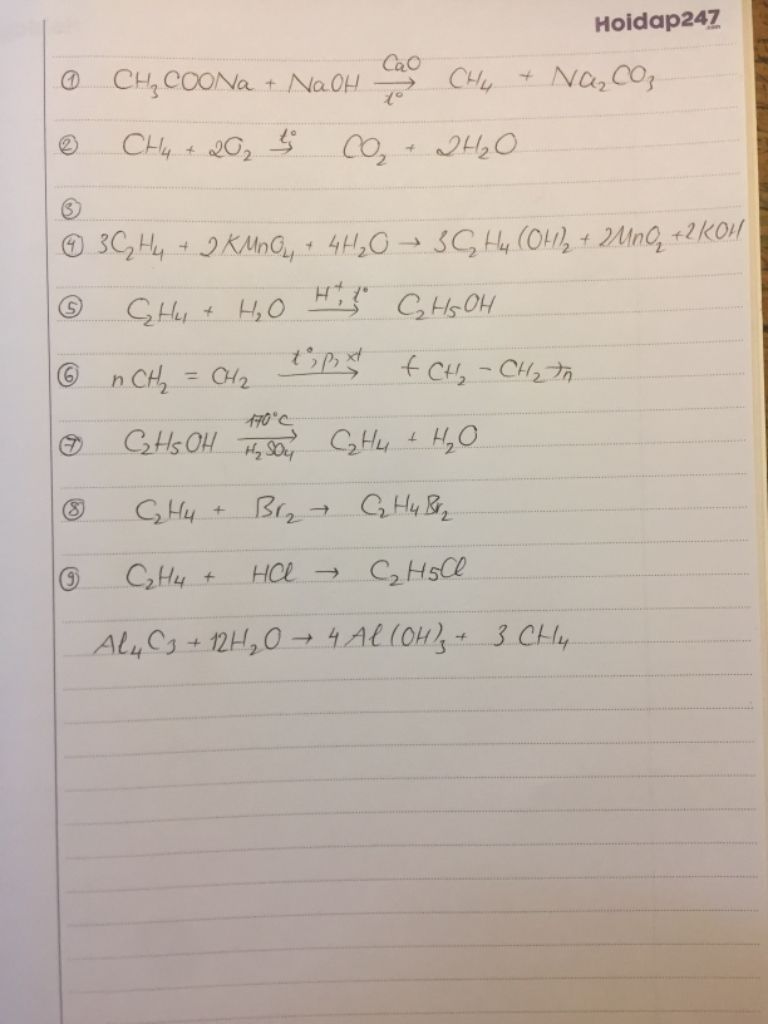 Hoidap247.com
① CH₃COONa + NaOH CaO/t° → CH₄ + Na₂CO₃
② CH₄ + 2O₂ t° → CO₂ + 2H₂O
③
④ 3C₂H₄ + 2KMnO₄ + 4H₂O → 3C₂H₄(OH)₂ + 2MnO₂ + 2KOH
⑤ C₂H₄ + H₂O H⁺, t° → C₂H₅OH
⑥ nCH₂ = CH₂ t°, p, xt → (CH₂ - CH₂)n
⑦ C₂H₅OH 170°C/H₂SO₄ → C₂H₄ + H₂O
⑧ C₂H₄ + Br₂ → C₂H₄Br₂
⑨ C₂H₄ + HCl → C₂H₅Cl
Al₄C₃ + 12H₂O → 4Al(OH)₃ + 3CH₄